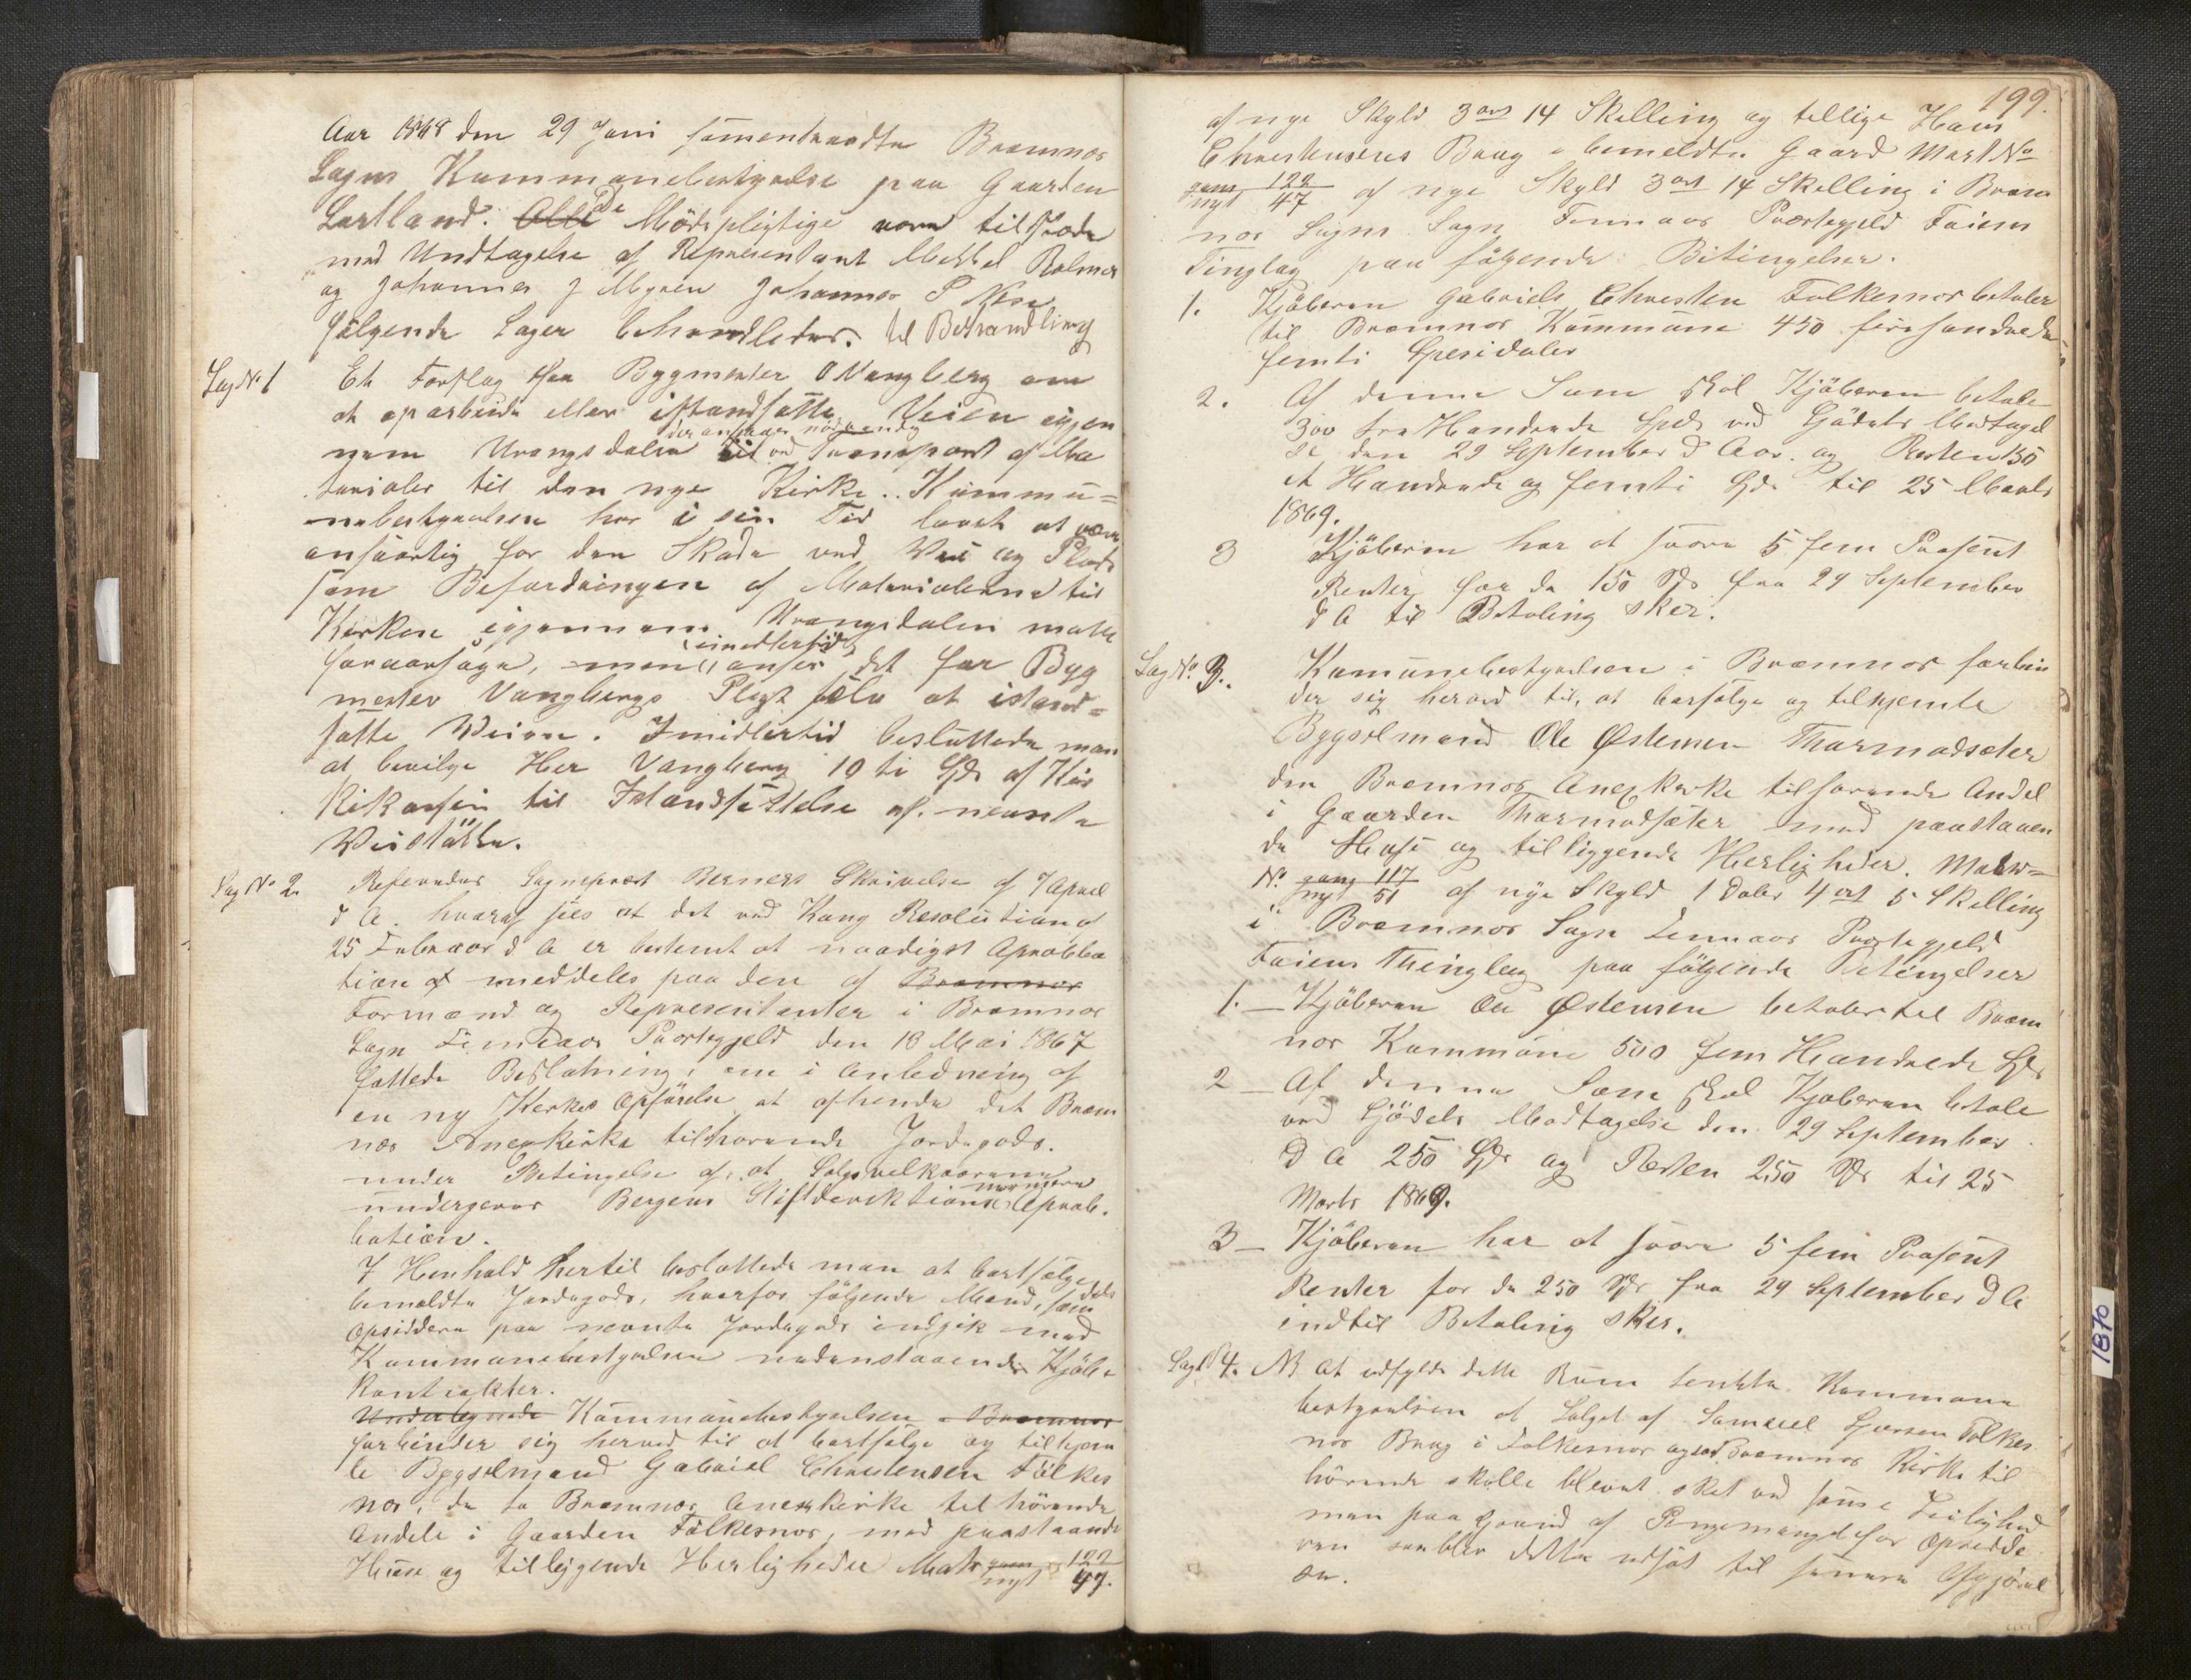 Aar 1868 den 29 Juni sammentraadte Bremnes
Sogns Kommunebestyrelse paa Gaarden
Lartland. Alle De Mödepligtige vare tilstæde
med Undtagelse af Representant Mikkel Rolsnes
og Johannes J Mgren Johannes P Næse
fölgende Sager behandledes. til Behandling
Sag No 1 Et Forslag fra Bygmester O Vangberg om
at oparbeide eller istandsætte Veien igjen
nem Vrangsdalen der ansees nödvendig til ved Transport af Ma
terialer til den nye Kirke. Kommu=
nebestyrelsen har i sin Tid lovet at være
ansvarlig for den Skade ved Vei og Plads
som Befordringen af Materialerne til
Kirken igjennem Vrangsdalen maatte
foraarsage, men anser imidlertid det for Byg
mester Vangbergs Pligt selv at istand=
sætte Veien. Imidlertid besluttede man
at bevilge Her Vangberg 10 ti Spd af Kir
kekassen til Istandsættelse af nævnte
Veistykke.
Sag No 2. Refereredes Sognepræst Berners Skrivelse af 7 April
d A. hvoraf sees at det ved Kong Resolution af
25 Februar d A er bestemt at naadigst Aprobba
tion af meddeles paa den af Bremnes
Formænd og Representanter i Bremnes
Sogn Finnaas Præstegjeld den 18 Mai 1867
fattede Beslutning, om i Anledning af
en ny Kerkes Opförelse at afhende det Brem
nes Anexkirke tilhörende Jordegods.
under Betingelse af, at Salgsvilkaarene
undergives Bergens Stiftdirektions nærmere Aprob.
bation.
I Henhold hertil besluttede man at bortsælge
bemeldte Jordegods, hvorfor fölgende Mænd, som dels
Opsiddere paa nævnte Jordegods indgik med
Kommunebestyrelsen nedenstaaende Kjöbe
kontrakter.
Undertegnede Kommunebestyrelsen i Bremnes
forbinder sig herved til at bortsælge og tilhjem
le Bygselmand Gabriel Christensen Folkes
nes, de to Bremnes Anexkirke tilhörende
Andele i Gaarden Folkesnes, med paastaaende
Huse og tilliggende Herligheder Matr gam 122
nyt 47.
199.
af nye Skyld 3 ort 14 Skelling og tillige Hans
Christensens Brug i bemeldte Gaard Mart No
gam 122
nyt 47 af nye Skyld 3 ort 14 Skelling i Brem
nes Sogns Sogn Finnaas Præstegjeld Føiens
Tinglag paa fölgende Bitingelser.
1. Kjöberen Gabriels Christen Folkesnes betaler
til Bremnes Kommune 450 firehundrede
femti Spesidaler
2. Af denne Sum skal Kjöberen betale
300 tre Hundrede Spd ved Skjödets Modtagel
se den 29 September d Aar. og Resten 150
et Hundrede og femti Spd til 25 Marts
1869.
3 Kjöberen har at svare 5 fem Prosent
Renter for de 150 Spd fra 29 September
d A til Betaling sker.
Sag No. 3. Komunebestyrelsen i Bremnes forbin
der sig herved til, at bortsælge og tilhjemle
Bygselmand Ole Østensen Thormodsæter
den Bremnes Anexkerke tilhörende Andel
i Gaarden Thormodsæter med paastaaen
de Huse og tilliggende Herligheder. Matr=
No. gam 117
nyt 51 af nye Skyld 1 Daler 4 ort 5 Skelling
i Bremnes Sogn Finnaas Præstegjeld
Føiens Thinglag paa fölgende Betingelser
1. – Kjöberen Ole Østensen betaler til Brem
nes Kommune 500 fem Hundrede Spd
2 – Af denne Sum skal Kjöberen betale
ved Sjödets Modtagelse den 29 September
d A 250 Spd og Resten 250 Spd til 25
Marts 1869.
3 – Kjöberen har at svare 5 fem Prosent
Renter for de 250 Spd fra 29 September d A
indtil Betaling sker.
Sag No 4. NB At udfylde dette Rum tenkte Kommune
bestyrelsen at Salget af Samuel Larsen Folkes
nes Brug i Folkesnes ogsaa Bremnes Kirke til
hörende skulle blevet sket ved samme Leilighed
men paa Grund af Pengemangel for Opsidde
ren saa blev dette udsat til senere Afgjörel
se.
1870